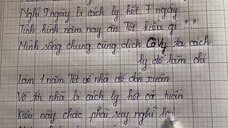 Nghỉ 9 ngày bị cách ly hết 7 ngày
Tình hình năm nay ăn Tết kiểu gì "
Mình sống chung cùng dịch Cô Vy ta cách
ly để làm chi
Làm 1 năm Tết về nhà để đón xuân
Về tới nhà bị cách ly hết cả tuần
kiểu này chắc phải suy nghĩ lại